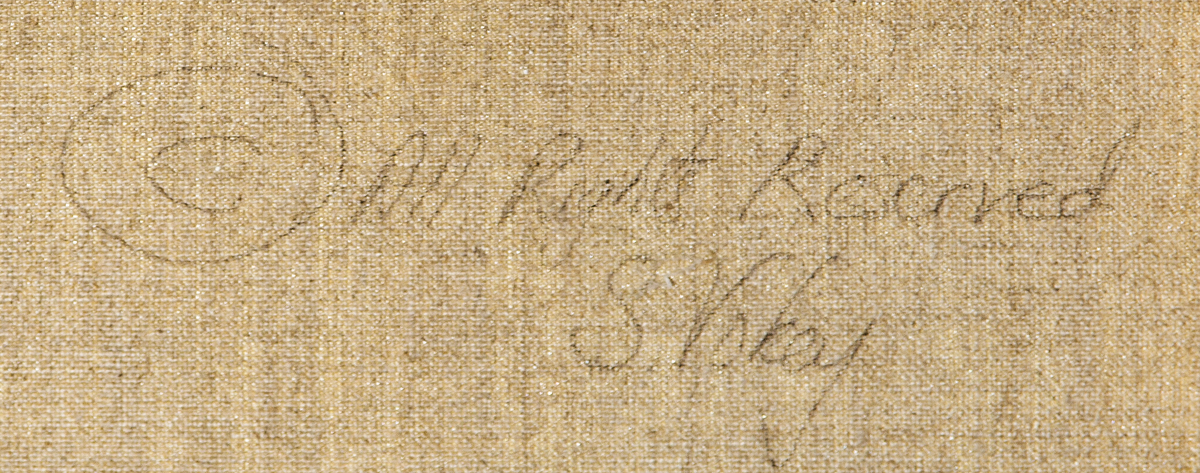 © All Rights Reserved
S. Vokey